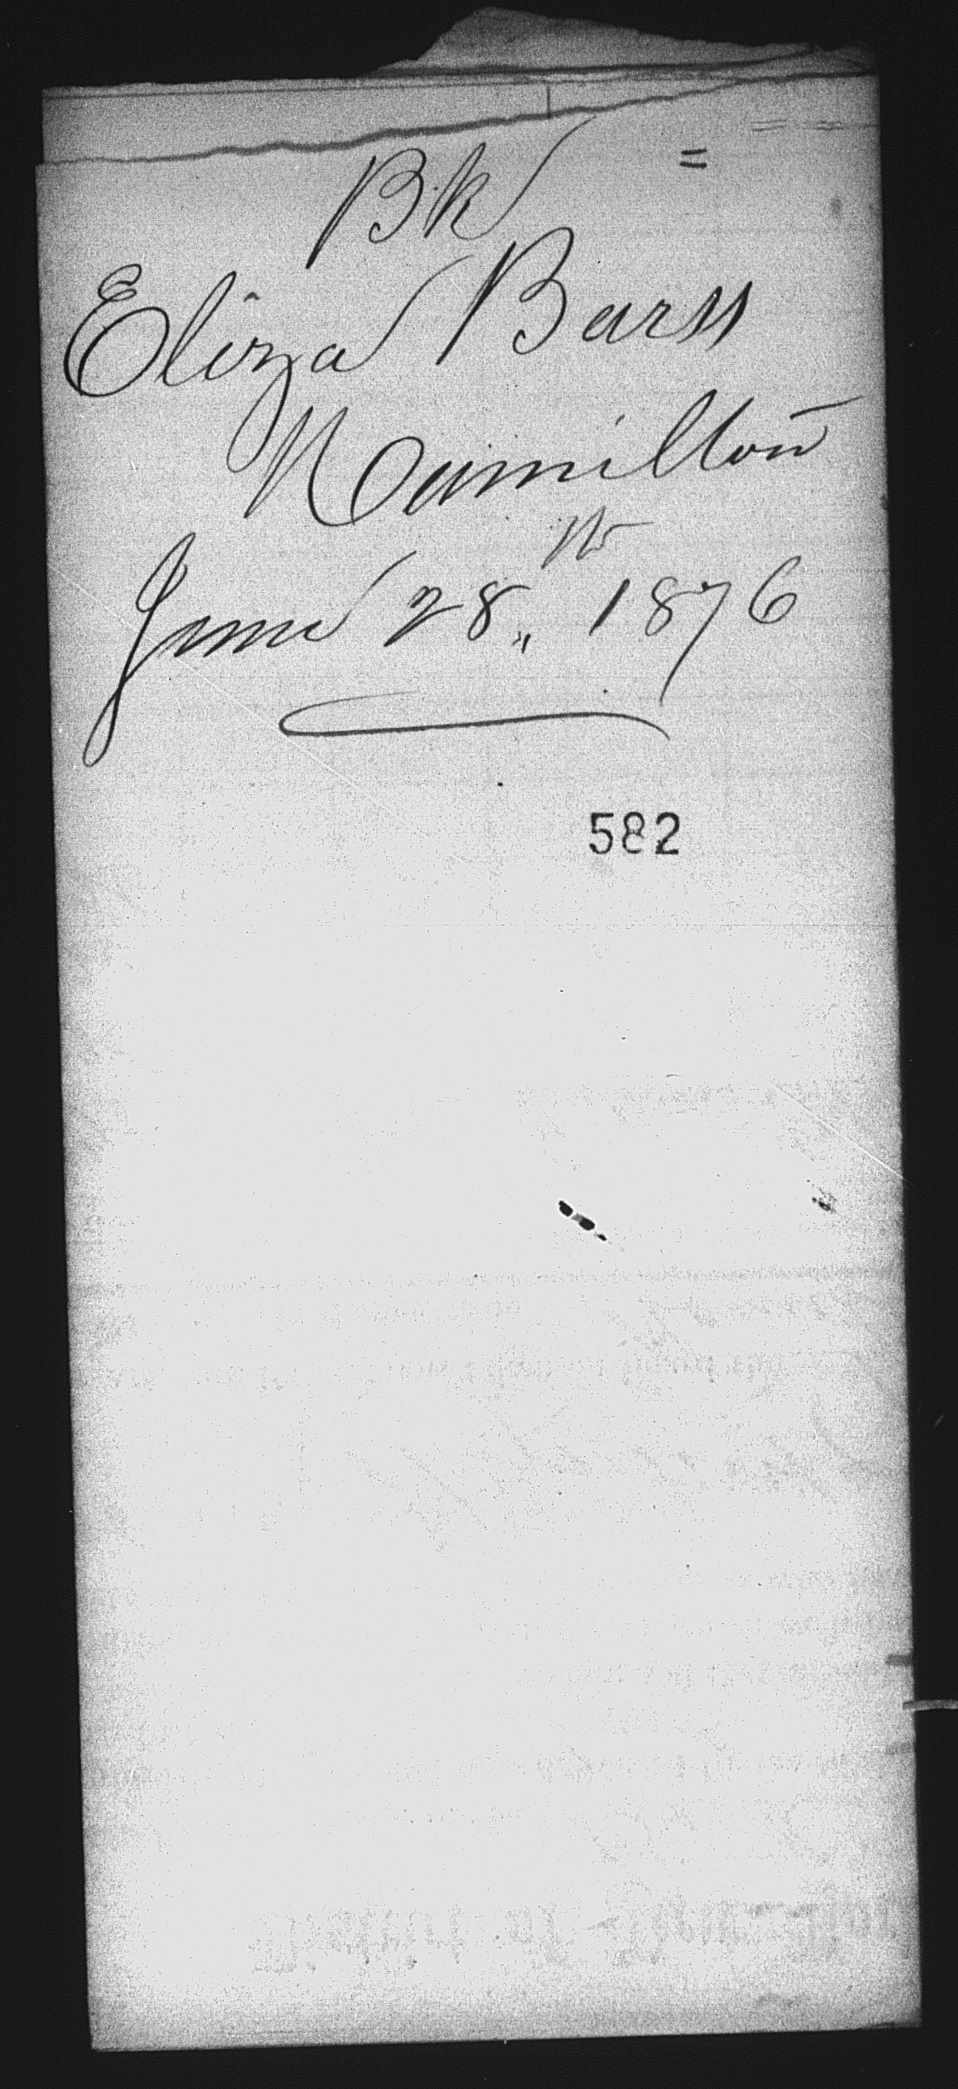 Bk
Eliza Barss
Hamilton
June 28th 1876
582